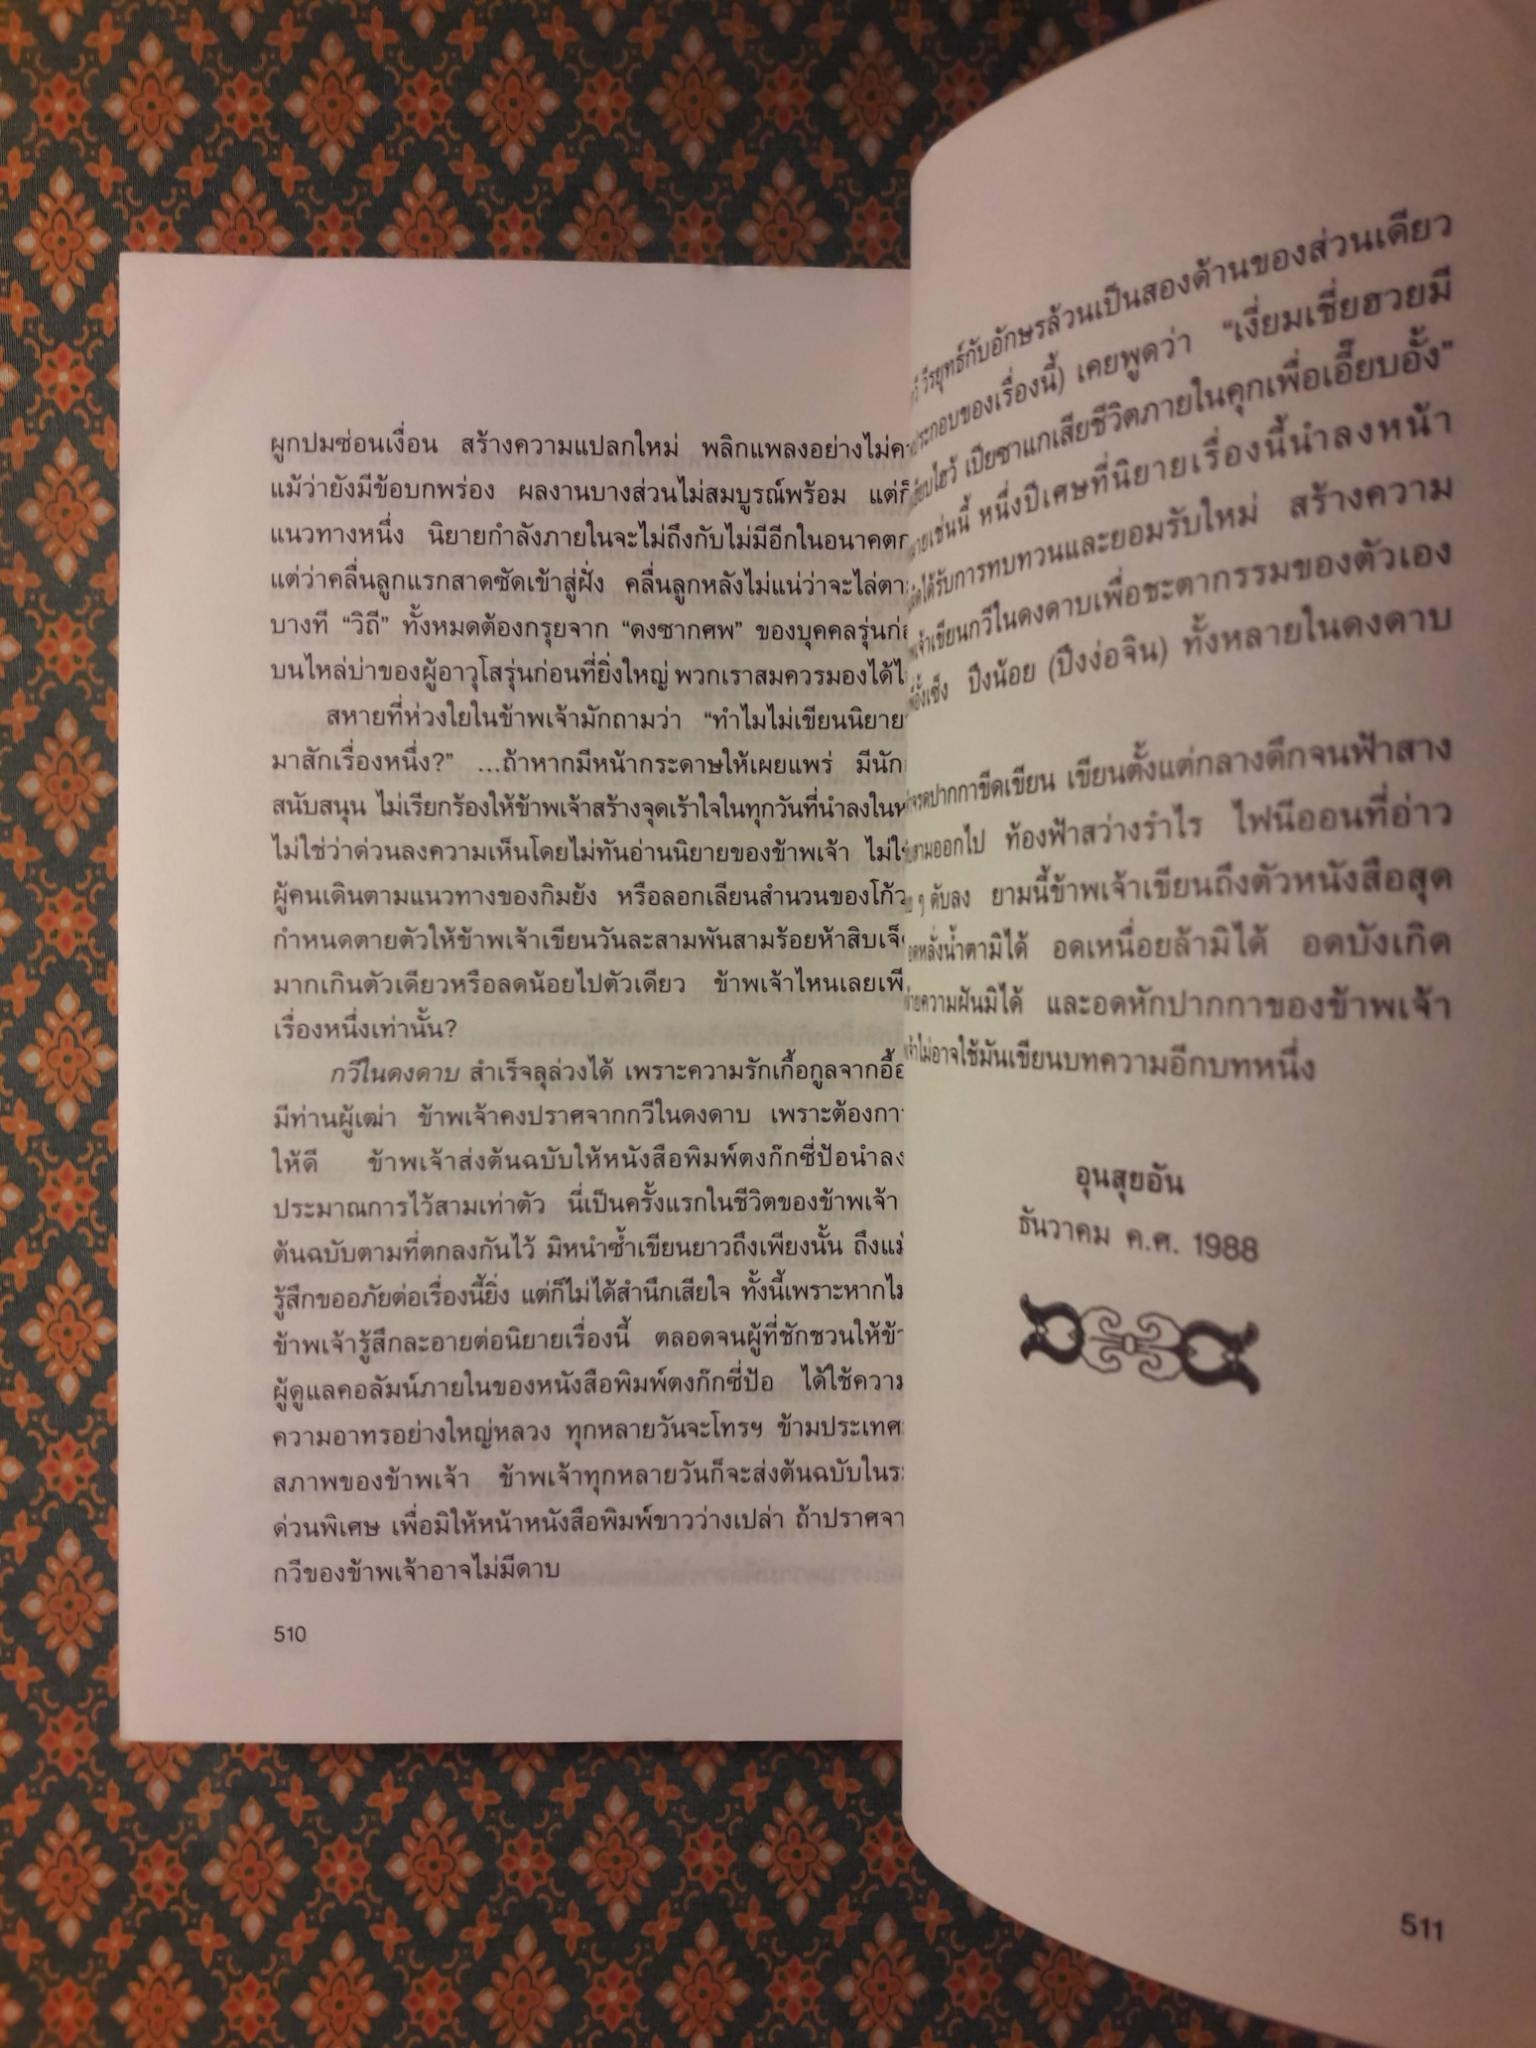 ผูกปมซ่อนเงื่อน สร้างความแปลกใหม่ พลิกแพลงอย่างไม่
แม้ว่ายังมีข้อบกพร่อง ผลงานบางส่วนไม่สมบูรณ์พร้อม แต่ก็
แนวทางหนึ่ง นิยายกำลังภายในจะไม่ถึงกับไม่มีอีกในอนาคต
แต่ว่าคลื่นลูกแรกสาดซัดเข้าสู่ฝั่ง คลื่นลูกหลังไม่แน่ว่าจะไล่
บางที “วิถี” ทั้งหมดต้องกรุยจาก “ดงซากศพ” ของบุคคลรุ่น
บนไหล่บ่าของผู้อาวุโสรุ่นก่อนที่ยิ่งใหญ่ พวกเราสมควรมองได้
สหายที่ห่วงใยในข้าพเจ้ามักถามว่า “ทำไมไม่เขียนนิยาย
มาสักเรื่องหนึ่ง?” ...ถ้าหากมีหน้ากระดาษให้เผยแพร่ มีนัก
สนับสนุน ไม่เรียกร้องให้ข้าพเจ้าสร้างจุดเร้าใจในทุกวันที่นำลงใน
ไม่ใช่ว่าด่วนลงความเห็นโดยไม่ทันอ่านนิยายของข้าพเจ้า
ผู้คนเดินตามแนวทางของกิมย้ง หรือลอกเลียนสำนวนของโก้ว
กำหนดตายตัวให้ข้าพเจ้าเขียนวันละสามพันสามร้อยห้าสิบ
มากเกินตัวเดียวหรือลดน้อยไปตัวเดียว ข้าพเจ้าไหนเลย
เรื่องหนึ่งเท่านั้น?
กวีในดงดาบ สำเร็จลุล่วงได้ เพราะความรักเกื้อกูลจาก
มีท่านผู้เฒ่า ข้าพเจ้าคงปราศจากกวีในดงดาบ เพราะ
ให้ดี ข้าพเจ้าส่งต้นฉบับให้หนังสือพิมพ์ตงก๊กซี่ป้อนำลง
ประมาณการไว้สามเท่าตัว นี่เป็นครั้งแรกในชีวิตของข้าพเจ้า
ต้นฉบับตามที่ตกลงกันไว้ มิหนำซ้ำเขียนยาวถึงเพียงนั้น
รู้สึกขออภัยต่อเรื่องนี้ยิ่ง แต่ก็ไม่ได้สำนึกเสียใจ ทั้งนี้เพราะหาก
ข้าพเจ้ารู้สึกละอายต่อนิยายเรื่องนี้ ตลอดจนผู้ที่ชักชวนให้
ผู้ดูแลคอลัมน์ภายในของหนังสือพิมพ์ตงก๊กซี่ป้อ ได้ใช้ความ
ความอาทรอย่างใหญ่หลวง ทุกหลายวันจะโทรฯ ข้ามประเทศ
สภาพของข้าพเจ้า ข้าพเจ้าทุกหลายวันก็จะส่งต้นฉบับใน
ด่วนพิเศษ เพื่อมิให้หน้าหนังสือพิมพ์ขาวว่างเปล่า ถ้าปราศ
กวีของข้าพเจ้าอาจไม่มีดาบ
510
วีรยุทธ์กับอักษรล้วนเป็นสองด้านของส่วนเดียว
ประกอบของเรื่องนี้) เคยพูดว่า “เงี่ยมเชี่ยฮวยมี
เปียซาแกเสียชีวิตภายในคุกเพื่อเอี๊ยบอั้ง”
เช่นนี้ หนึ่งปีเศษที่นิยายเรื่องนี้นำลงหน้า
ได้รับการทบทวนและยอมรับใหม่ สร้างความ
เขียนกวีในดงดาบเพื่อชะตากรรมของตัวเอง
ปึงน้อย (ปึงง่อจิน) ทั้งหลายในดงดาบ
จรดปากกาขีดเขียน เขียนตั้งแต่กลางดึกจนฟ้าสาง
ออกไป ท้องฟ้าสว่างรำไร ไฟนีออนที่อ่าว
ๆ ดับลง ยามนี้ข้าพเจ้าเขียนถึงตัวหนังสือสุด
หลั่งน้ำตามิได้ อดเหนื่อยล้ามิได้ อดบังเกิด
ความฝันมิได้ และอดหักปากกาของข้าพเจ้า
ไม่อาจใช้มันเขียนบทความอีกบทหนึ่ง
อุนสุยอัน
ธันวาคม ค.ศ. 1988
511